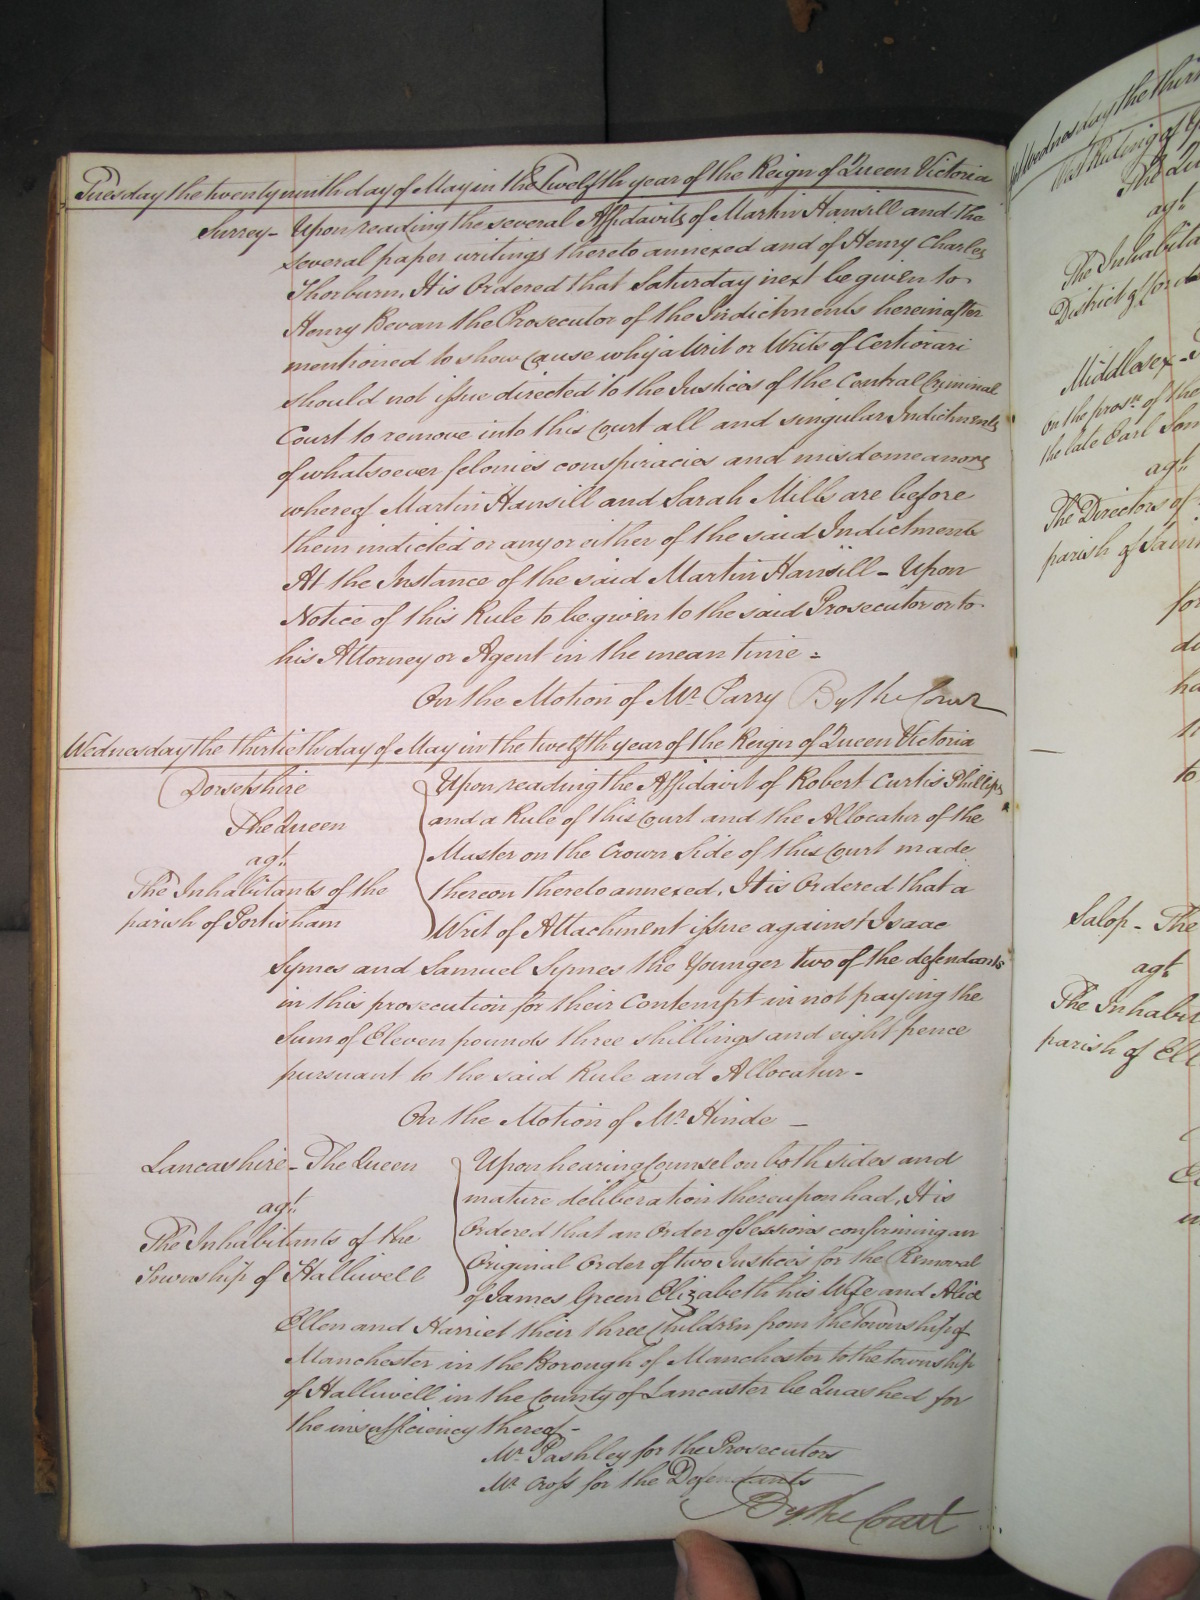 Tuesday the twenty ninth day of May in the Twelfth year of the Reign of Queen Victoria
Surrey - Upon reading the several Affidavits of Martin Hansill and the
several paper writings thereto annexed and of Henry Charles
Thorburn, It is Ordered that Saturday next be given to
Henry Bevan the Prosecutor of the Indictments hereinafter
mentioned to show Cause why a Writ or Writs of Certiorari
should not issue directed to the Justices of the Central Criminal
Court to remove into this Court all and singular Indictments
of whatsoever felonies conspiracies and misdemeanors
whereof Martin Hansill and Sarah Mills are before
them indicted or any or either of the said Indictments
At the Instance of the said Martin Hansill - Upon
Notice of this Rule to be given to the said Prosecutor or to
his Attorney or Agent in the mean time =
On the Motion of Mr. Parry By the Court
Wednesday the thirtieth day of May in the twelfth year of the Reign of Queen Victoria
Dorsetshire
The Queen
agt.
The Inhabitants of the
parish of Portisham
Upon reading the Affidavit of Robert Curtis Phillips
and a Rule of this Court and the Allocatur of the
Master on the Crown Side of this Court made
thereon thereto annexed, It is Ordered that a
Writ of Attachment issue against Isaac
Symes and Samuel Symes the Younger two of the defendants
in this prosecution for their Contempt in not paying the
Sum of Eleven pounds three shillings and eight pence
pursuant to the said Rule and Allocatur -
On the Motion of Mr. Hinde -
Lancashire - The Queen
agt.
The Inhabitants of the
Township of Halliwell
Upon hearing Counsel on both sides and
mature deliberation thereupon had, It is
Ordered that an Order of Sessions confirming an
Original Order of two Justices for the Removal
of James Green Elizabeth his Wife and Alice
Ellen and Harriet their three Children from the Township of
Manchester in the Borough of Manchester to the township
of Halliwell in the County of Lancaster be Quashed for
the insufficiency thereof -
Mr. Pashley for the Prosecutors
Mr. Cross for the Defendants
By the Court
Wednesday the thirt
agt.
The Inhabita
District of
Middlesex -
on the prosn. of the
the late Earl
agt.
The Directors of
parish of Saint
for
to
Salop - The
agt.
The Inhabit
parish of Ell